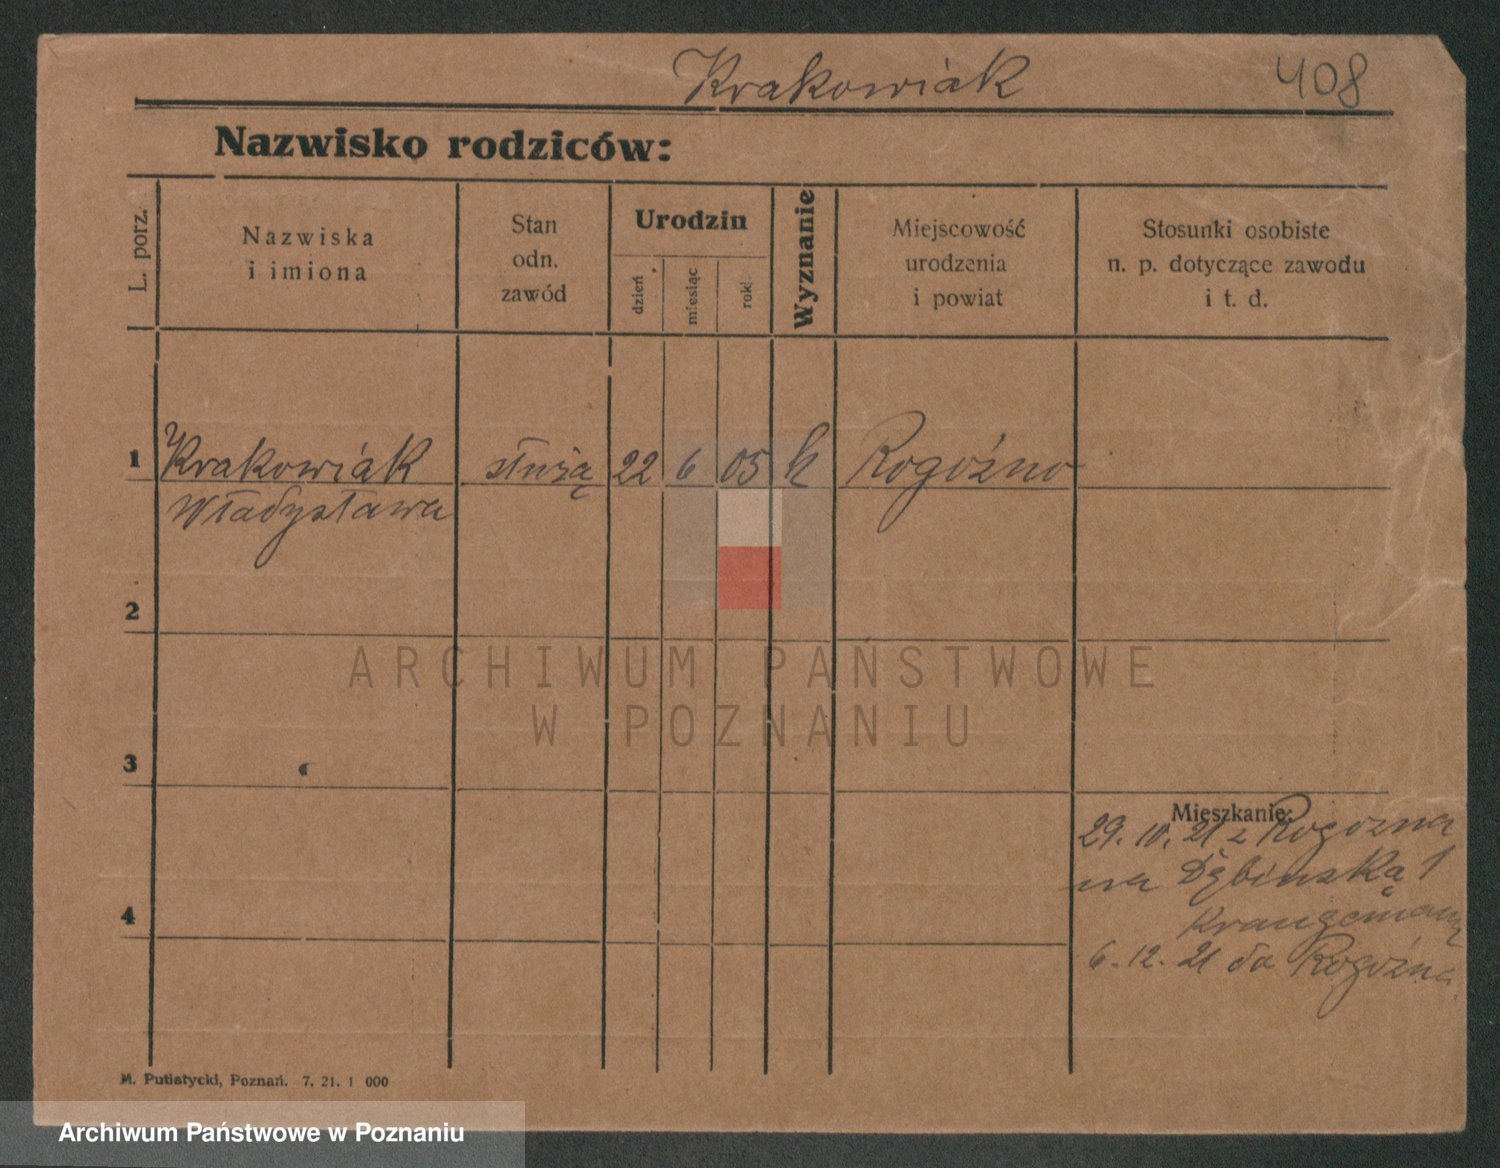 Krakowiak 408
Nazwisko rodziców:
L. porz.
Nazwiska
i imiona
Stan
odn.
zawód
Urodzin
dzień
miesiąc
rok
Wyznanie
Miejscowość
urodzenia
i powiat
Stosunki osobiste
n. p. dotyczące zawodu
i t. d.
1 Krakowiak służą 22 6 05 k Rogoźno
Władysława
2
ARCHIWUM PAŃSTWOWE
W POZNANIU
3
Mieszkanie:
29. 10. 21 z Rogozna
na Dębińską 1
4
6. 12. 21 do Rogoźna
M. Putiatycki, Poznań. 7. 21. 1 000
Archiwum Państwowe w Poznaniu